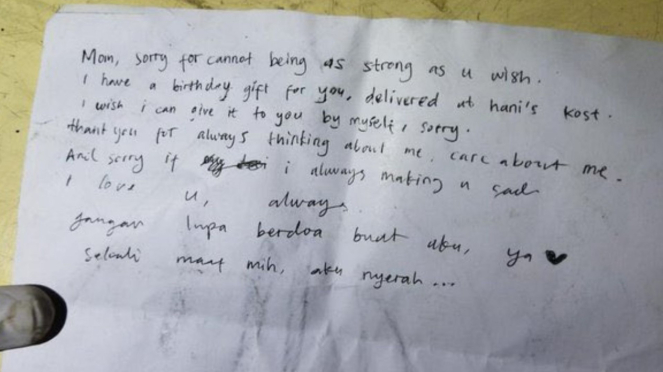 Mom, sorry for cannot being as strong as u wish.
I have a birthday gift for you, delivered at hani's kost.
I wish i can give it to you by myself, sorry.
thank you for always thinking about me, care about me.
And sorry if i always making u sad
I love u, always.
jangan lupa berdoa buat aku, ya ♥
Sekali maaf mih, aku nyerah...